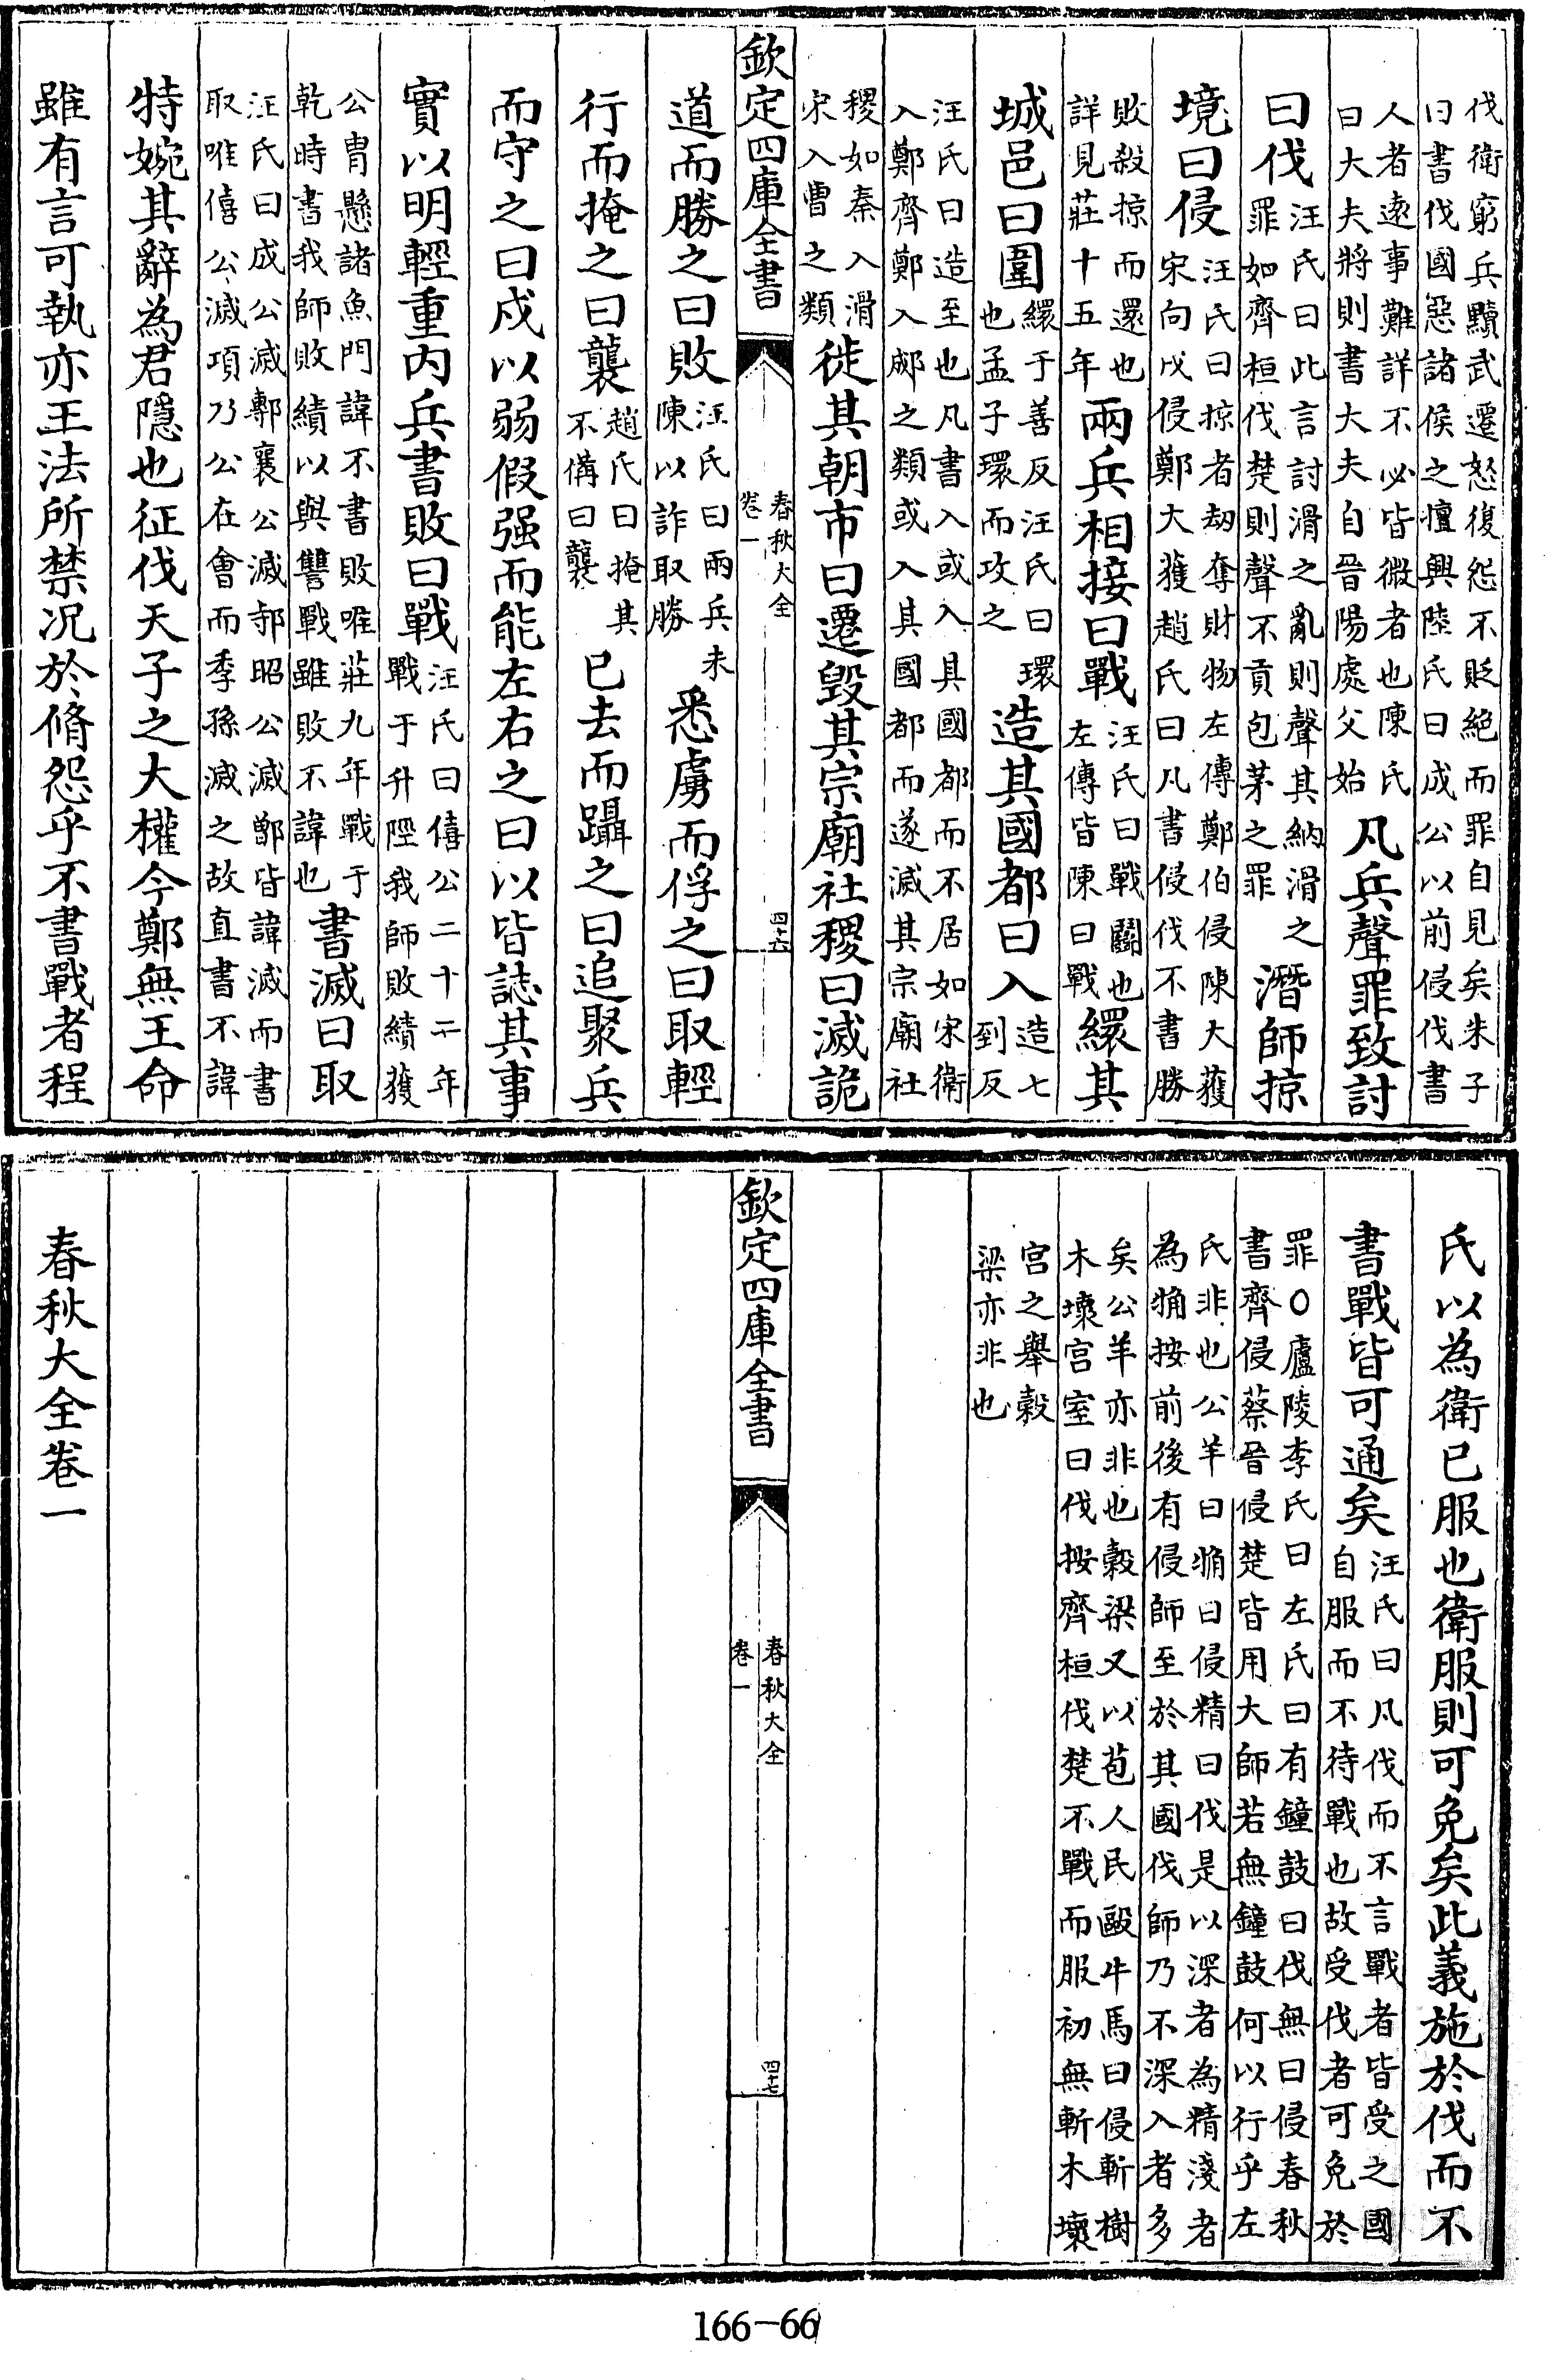 伐衛窮兵黷武遷怒復怨不貶絶而罪自見矣朱子
曰書伐國惡諸侯之擅興陸氏曰成公以前侵伐書
人者逺事難詳不必皆微者也陳氏
曰大夫將則書大夫自晉陽處父始
凡兵聲罪致討
曰伐
汪氏曰此言討滑之亂則聲其納滑之
罪如齊桓伐楚則聲不貢包茅之罪
潛師掠
境曰侵
汪氏曰掠者刼奪財物左傳鄭伯侵陳大獲
宋向戌侵鄭大獲趙氏曰凡書侵伐不書勝
敗殺掠而還也
詳見莊十五年
兩兵相接曰戰
汪氏曰戰鬬也
左傳皆陳曰戰
繯其
城邑曰圍
繯于善反汪氏曰環
也孟子環而攻之
造其國都曰入
造七
到反
汪氏曰造至也凡書入或入其國都而不居如宋衛
入鄭齊鄭入郕之類或入其國都而遂滅其宗廟社
稷如秦入滑
宋入曹之類
徙其朝市曰遷毁其宗廟社稷曰滅詭
欽定四庫全書
春秋大全
卷一
四十六
道而勝之曰敗
汪氏曰兩兵未
陳以詐取勝
悉虜而俘之曰取輕
行而掩之曰襲
趙氏曰掩其
不備曰襲
已去而躡之曰追聚兵
而守之曰戍以弱假强而能左右之曰以皆誌其事
實以明輕重内兵書敗曰戰
汪氏曰僖公二十二年
戰于升陘我師敗績獲
公胄懸諸魚門諱不書敗唯莊九年戰于
乾時書我師敗績以與讐戰雖敗不諱也
書滅曰取
汪氏曰成公滅鄟襄公滅邿昭公滅鄫皆諱滅而書
取唯僖公滅項乃公在會而季孫滅之故直書不諱
特婉其辭為君隱也征伐天子之大權今鄭無王命
雖有言可執亦王法所禁况於脩怨乎不書戰者程
氏以為衛已服也衛服則可免矣此義施於伐而不
書戰皆可通矣
汪氏曰凡伐而不言戰者皆受之國
自服而不待戰也故受伐者可免於
罪○廬陵李氏曰左氏曰有鐘鼓曰伐無曰侵春秋
書齊侵蔡晉侵楚皆用大師若無鐘鼓何以行乎左
氏非也公羊曰觕曰侵精曰伐是以深者為精淺者
為觕按前後有侵師至於其國伐師乃不深入者多
矣公羊亦非也榖梁又以苞人民毆牛馬曰侵斬樹
木壞宫室曰伐按齊桓伐楚不戰而服初無斬木壞
宫之舉榖
梁亦非也
欽定四庫全書
春秋大全
卷一
四十七
春秋大全卷一
166-66